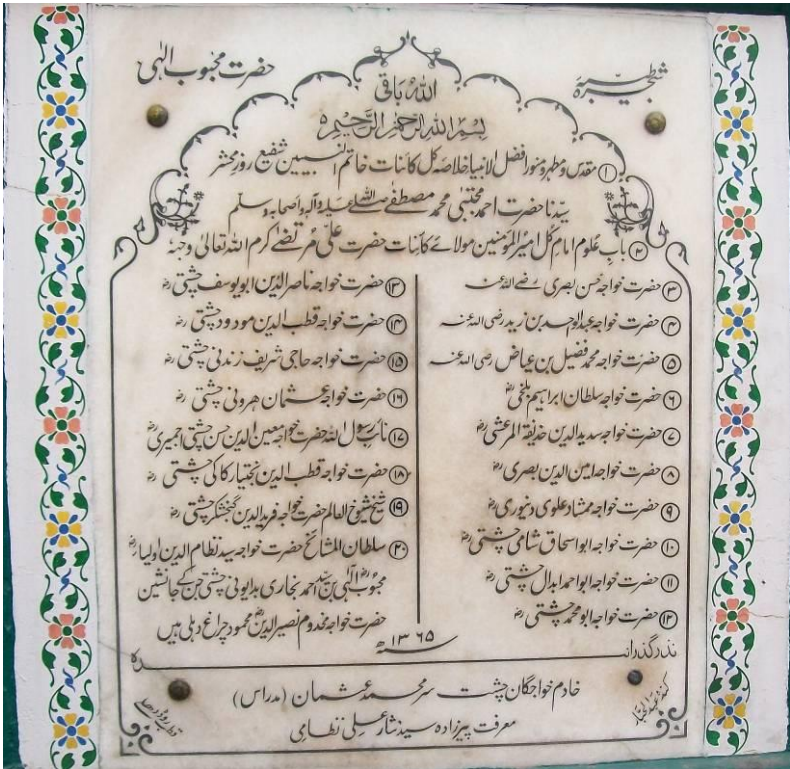 شجرہ طیبہ
حضرت محبوب الٰہی
اللہ باقی
بسم اللہ الرحمن الرحیم
۱ مقدس و مطہر و منور افضل الانبیا خلاصہ کل کائنات خاتم النبیین شفیع روز محشر
سیدنا حضرت احمد مجتبیٰ محمد مصطفےٰ صلی اللہ علیہ وآلہ واصحابہ وسلم
۲ باب علوم امام کل امیر المؤمنین مولائے کائنات حضرت علی مرتضےٰ کرم اللہ تعالیٰ وجہہ
۳ حضرت خواجہ حسن بصری رضی اللہ عنہ
۴ حضرت خواجہ عبدالواحد بن زید رضی اللہ عنہ
۵ حضرت خواجہ محمد فضیل بن عیاض رضی اللہ عنہ
۶ حضرت خواجہ سلطان ابراہیم بلخی رض
۷ حضرت خواجہ سدید الدین حذیفۃ المرعشی رض
۸ حضرت خواجہ امین الدین بصری رض
۹ حضرت خواجہ ممشاد علوی دنیوری رض
۱۰ حضرت خواجہ ابو اسحاق شامی چشتی رض
۱۱ حضرت خواجہ ابو احمد ابدال چشتی رض
۱۲ حضرت خواجہ ابو محمد چشتی رض
۱۳ حضرت خواجہ ناصر الدین ابو یوسف چشتی رض
۱۴ حضرت خواجہ قطب الدین مودود چشتی رض
۱۵ حضرت خواجہ حاجی شریف زندنی چشتی رض
۱۶ حضرت خواجہ عثمان ھرونی چشتی رض
۱۷ نائب رسول اللہ حضرت خواجہ معین الدین حسن چشتی اجمیری رض
۱۸ حضرت خواجہ قطب الدین بختیار کاکی چشتی رض
۱۹ شیخ شیوخ العالم حضرت خواجہ فرید الدین گنجشکر چشتی رض
۲۰ سلطان المشائخ حضرت خواجہ سید نظام الدین اولیا رض
محبوب الٰہی بن سید احمد بخاری بدایونی چشتی جن کے جانشین
حضرت خواجہ مخدوم نصیر الدین محمود چراغ دہلی ہیں
۱۳۶۵ھ
نذر گذرانیدہ
خادم خواجگان چشت سر محمد عثمان (مدراس)
معرفت پیرزادہ سید نثار علی نظامی